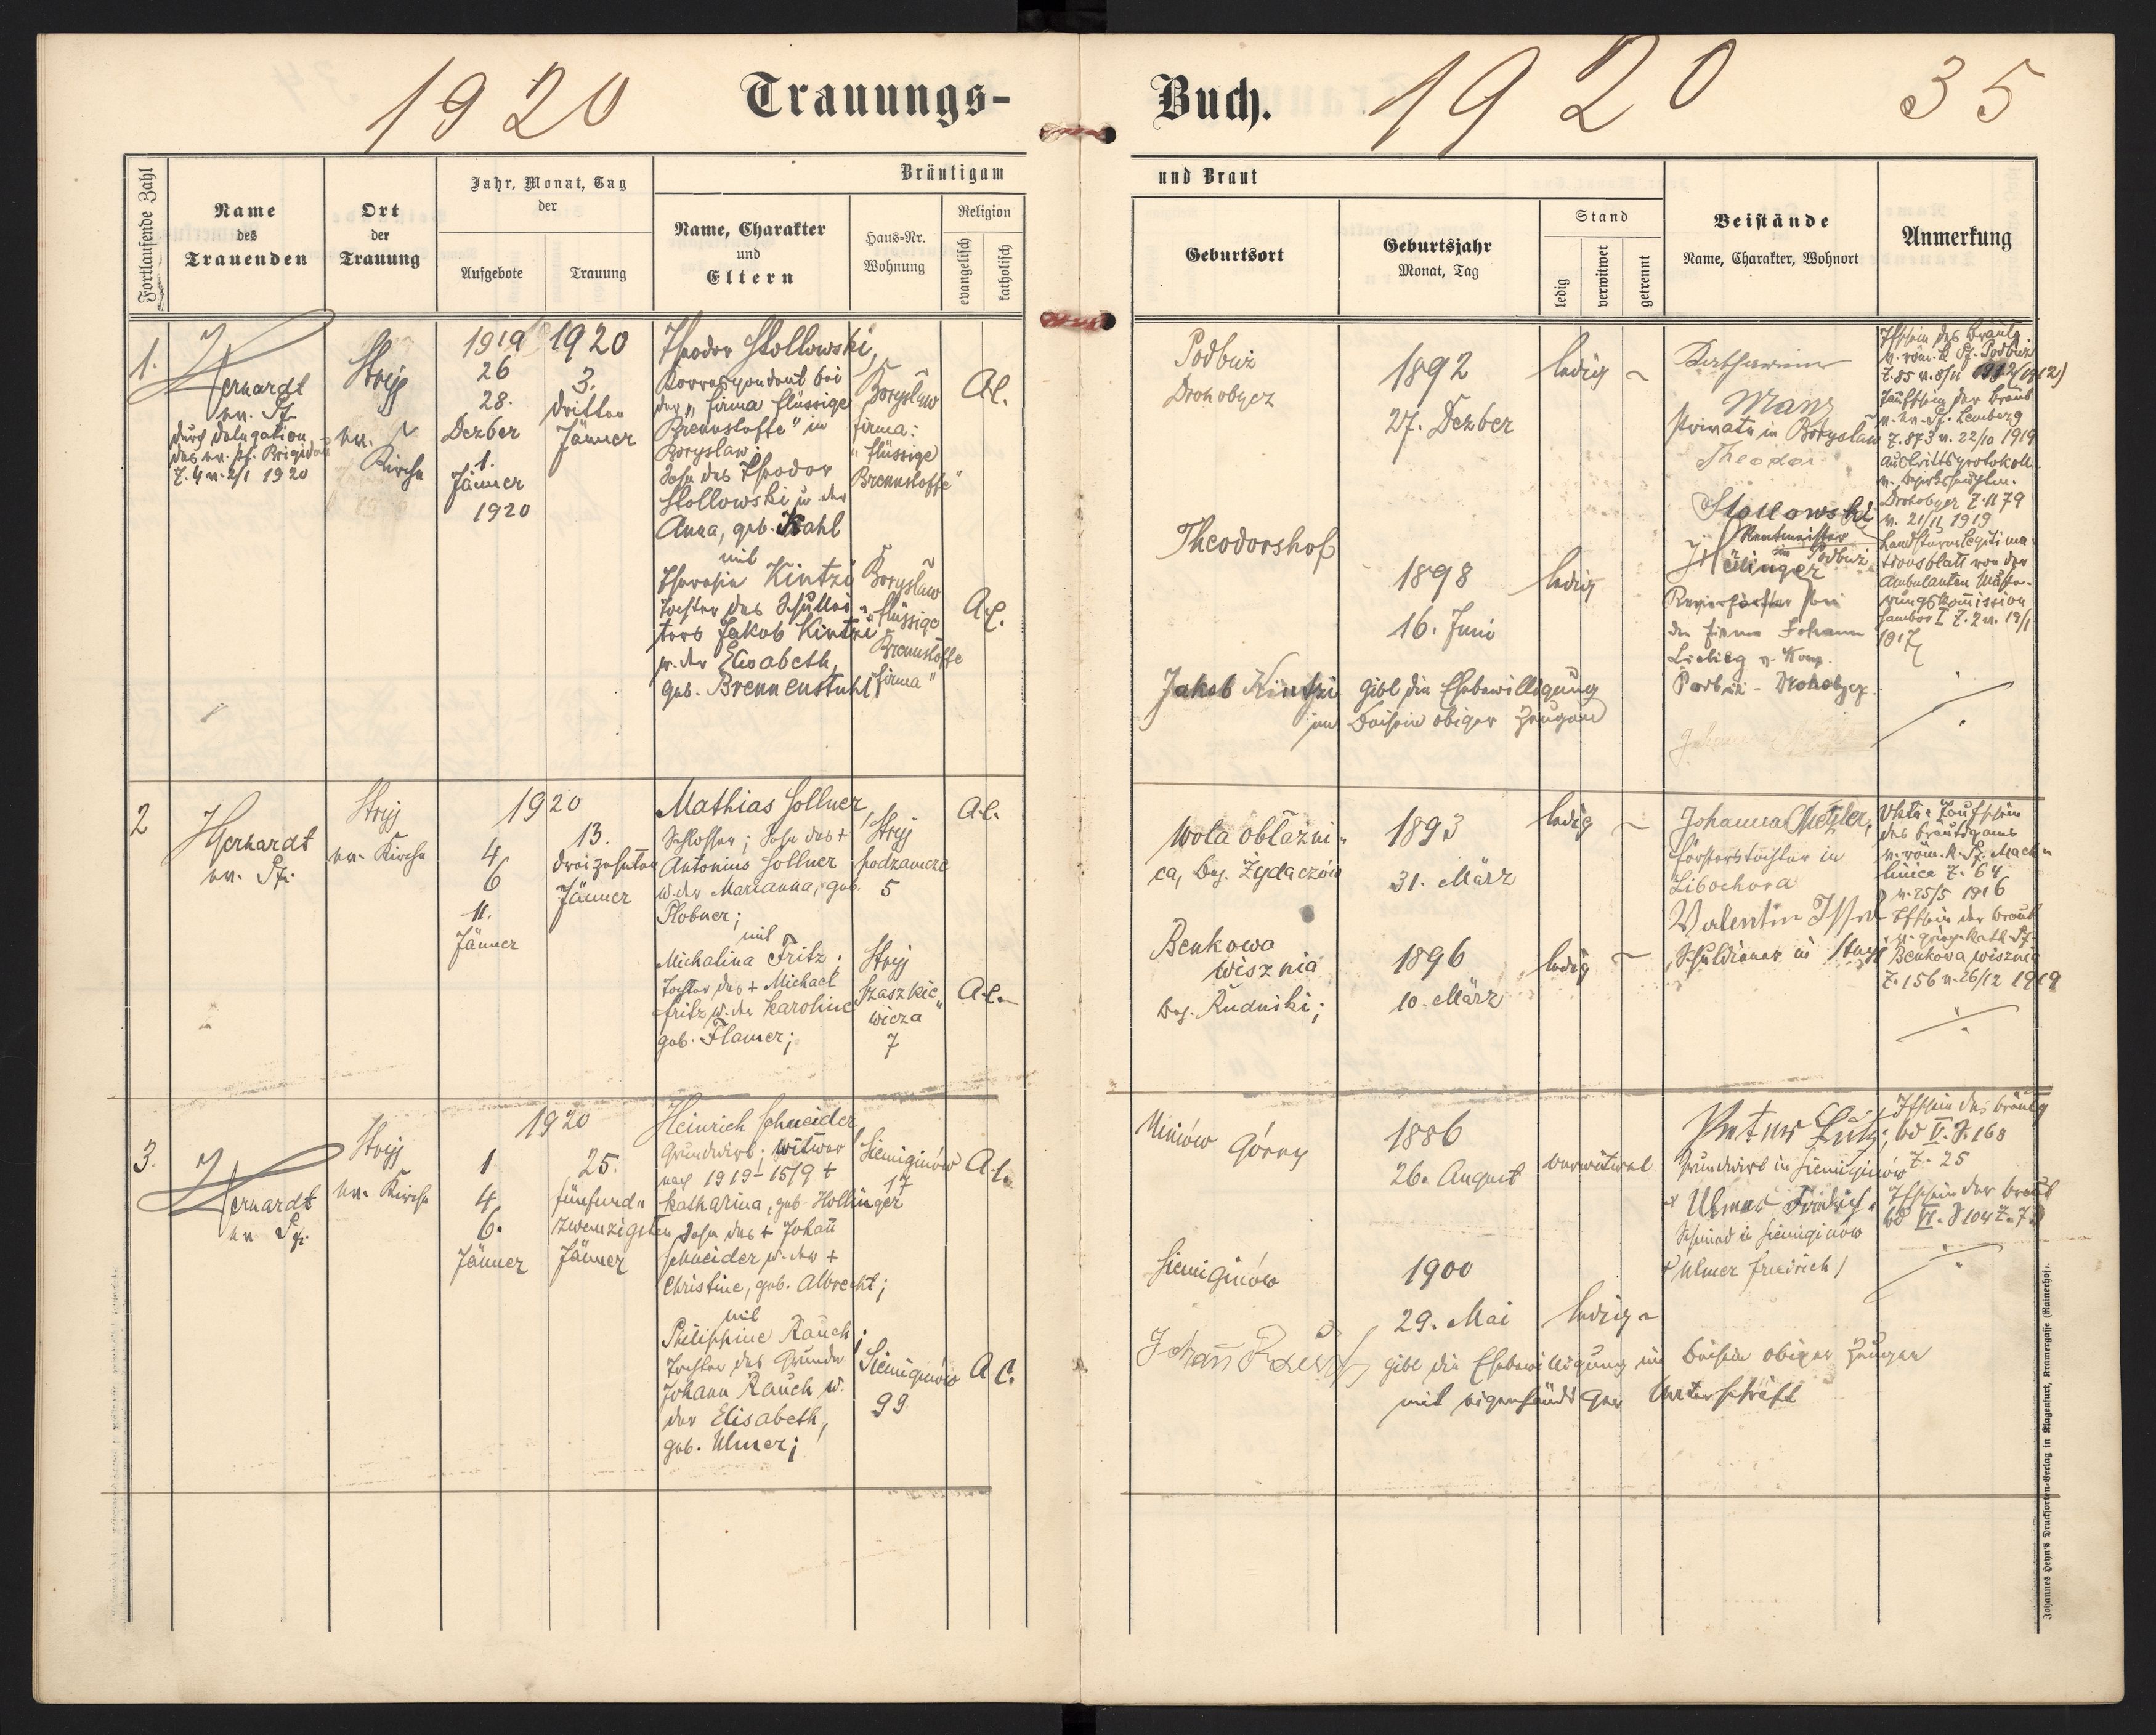 1920 Trauungs-
Buch. 1920 35
Fortlaufende Zahl
Name
des
Trauenden
Ort
der
Trauung
Jahr, Monat, Tag
der
Aufgebote
Trauung
Bräutigam
Name, Charakter
und
Eltern
Haus-Nr.
Wohnung
Religion
evangelisch
katholisch
und Braut
Geburtsort
Geburtsjahr
Monat, Tag
Stand
ledig
verwitwet
getrennt
Beistände
Name, Charakter, Wohnort
Anmerkung
1.
ev. Pf.
durch Delegation
des ev. Pf. Brigidau
Z. 4 v. 2/1 1920
Stryj
ev.
Kirche
1919
26
28.
Dezber
1.
Jänner
1920
1920
3.
dritten
Jänner
Theodor Stollowski,
Korrespondent bei
der „Firma flüssige
Brennstoffe" in
Boryslaw.
Sohn des Theodor
Stollowski u. der
Anna, geb. Kahl
mit
Theresia Kintzi
Tochter des Schullei-
ters Jakob Kintzi
u. der Elisabeth,
geb. Brennenstuhl,
Boryslaw
firma:
„flüssige
Brennstoffe"
Boryslaw
„flüssige
Brennstoffe
firma"
A.C.
A.C.
Podbuż
Drohobycz
Theodorshof
1892
27. Dezber
1898
16. Juni
ledig
ledig
Jakob Kintzi gibt die Ehebewilligung
im Beisein obiger Zeugen
Katharina
Manz
Private in Boryslaw
Theodor
Stollowski
Rentmeister
in Podbuż
Revierförster bei
der Firma Johann
Liebieg u. Komp.
Podbuż - Drohobycz.
Tfschein des Bräutg
v. röm. k. Pf. Podbuż
Taufschein der Braut
v. ev. Pf. Lemberg
Z. 873 v. 22/10 1919
Austrittsprotokoll
Drohobycz Z. 1179
v. 21/11 1919
Landsturmlegitima
tionsblatt von der
Ambulanten Muste-
rungskommission
Sambor I Z. 2 v. 19/1
1917
2
Gerhardt
ev. Pf.
Stryj
ev. Kirche
1920
4
6
11.
Jänner
13.
dreizehnten
Jänner
Mathias Sollner,
Schlosser; Sohn des +
Antonius Sollner
u. der Marianna, geb.
mit
Michalina Fritz;
Tochter des + Michael
Fritz u. der Karoline
geb. Flamer;
Stryj
podzamcze
5
Stryj
Szaszkie-
wicza
7
A.C.
A.C.
Wola obłaźni-
ca, Bez. Żydaczów
Benkowa
Wisznia
Bez. Rudniki;
1893
31. März
1896
10. März
ledig
ledig
Johanna
Försterstochter in
Libochora
Valentin
Schuldiener in Stryj
Taufschein
des Bräutigams
v. röm. k. Pf. Mach-
liniec Z. 64
v. 25/5 1916
Tfschein der Braut
v. griech. kath. Pf.
Benkowa wisznia
Z. 156 v. 26/12 1919
3.
ev. Pf.
Stryj
ev. Kirche
1920
1
4
6.
Jänner
25.
fünfund-
zwanzigsten
Jänner
Heinrich Schneider,
Grundwirt; Witwer
nach 1919-15/9 +
Katharina, geb. Hollinger
Sohn des + Johann
Schneider u. der +
Christine, geb. Albrecht;
mit
Philippine Rauch;
Tochter des Grundw
Johann Rauch u.
der Elisabeth,
geb. Ulmer;
Siemiginów
17
Siemiginów
99
A.C.
A.C.
Uniów Górny
Siemiginów
1886
26. August
1900
29. Mai
verwitwet
ledig
Johann Rauch gibt die Ehebewilligung im Beisein obiger Zeugen
mit eigenhändiger Unterschrift
Grundwirt in Siemiginów
Schmied in Siemiginów
Tfschein des Bräutg
Bd V. S. 168
Z. 25
Tfschein der Braut
Bd VI. S 104 Z. 7
Johannes Heyn's Drucksorten-Verlag in Klagenfurt, Kramergasse (Rainerhof).